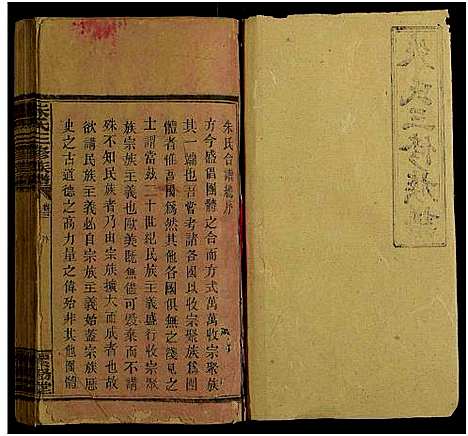 朱氏三修族譜
朱氏合譜總序
方今盛倡團體之合而方式萬萬收宗聚族
其一端也吾嘗考諸各國以收宗聚族為團
體者惟吾國為然其他各國俱無之淺見之
士謂當茲二十世紀民族主義盛行收宗聚
族宗族主義也歐美既無儘可毀棄而不講
殊不知民族者乃由宗族擴大而成者也故
欲講民族主義必自宗族主義始蓋宗族歷
史之古道德之高力量之偉殆非其他團體
朱氏三修族譜